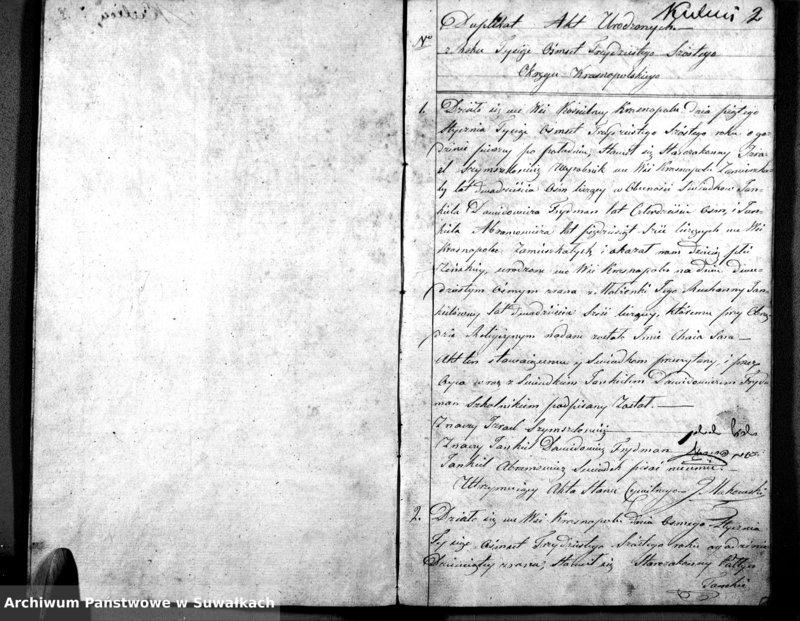 2
Duplikat Akt Urodzonych
No
z Roku Tysiąc Ośmset Trzydziestego Szóstego
Okręgu Krasnopolskiego
1. Działo się we Wsi Kościelney Krasnopolu dnia piątego
Stycznia Tysiąc Ośmset Trzydziestego Szóstego roku o go-
dzinie pierwszy po południu, Stawił się Starozakonny Izra-
el Szymszelowicz Wyrobnik we Wsi Krasnopolu Zamieszka-
ły lat dwadzieścia Ośm liczący w Obecności Świadków Jan-
kiela Dawidowicza Frydman lat Czterdzieści Ośm, i Jan-
kiela Abramowicza lat pięćdziesiąt liczących we Wsi
Krasnopolu Zamieszkałych i okazał nam dziecię płci
Żeńskiey, urodzone we Wsi Krasnopolu na dniu dwu-
dziestym Ośmym z rana z Małżonki Jego Jan-
kielówny lat dwadzieścia Sześć liczący, któremu przy Obrzę-
dzie Religijnym nadane zostało Imie Chaia Sora
Akt ten stawaiącemu y Świadkom przeczytany i przez
Oyca wraz z Świadkiem Jankielem Dawidowiczem Fryd-
man Szkolnikiem podpisany Został.
Znaczy Izrael Szymszelowicz
Znaczy Jankiel Dawidowicz Frydman
Jankiel Abramowicz Świadek pisać nieumie
Utrzymuiący Akta Stanu Cywilnego J Makowski
2. Działo się we Wsi Krasnopolu dnia Osmego Stycznia
Tysiąc Ośmset Trzydziestego Szóstego roku o godzinie
Dziewiątey z rana, Stawił się Starozakonny
Archiwum Państwowe w Suwałkach